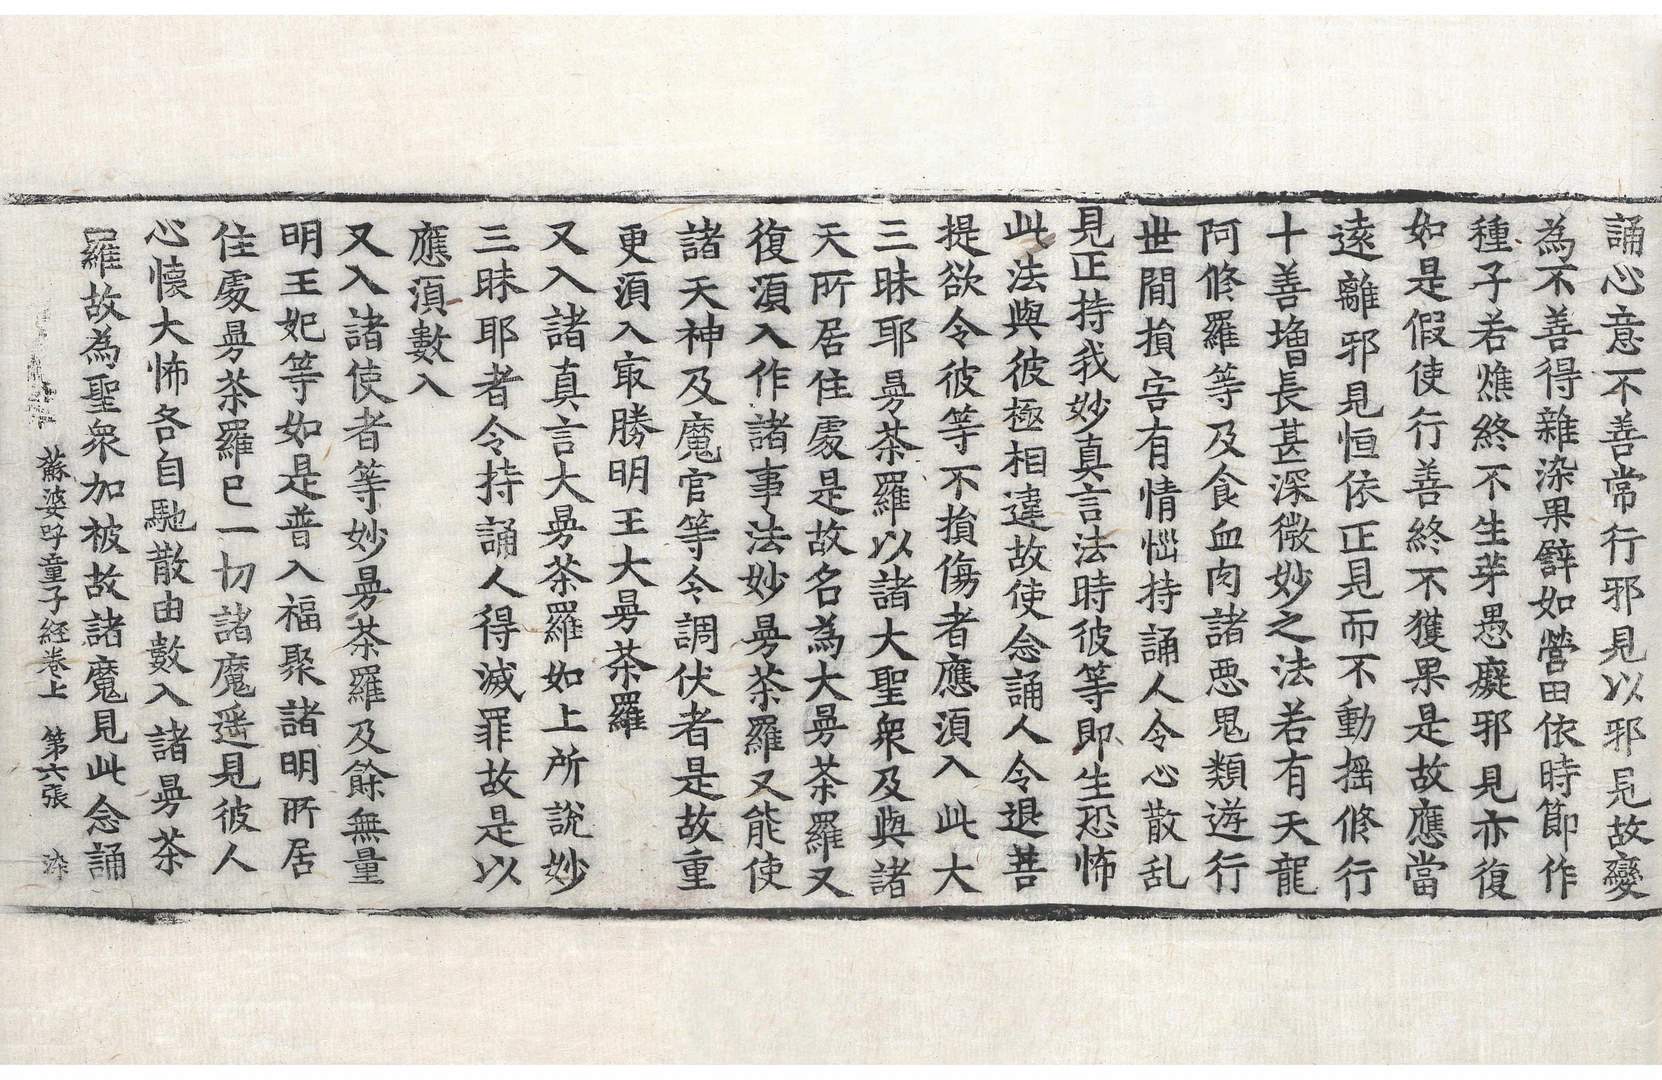 誦心意不善常行邪見以邪見故變
為不善得雜染果譬如營田依時節作
種子若燋終不生芽愚癡邪見亦復
如是假使行善終不獲果是故應當
遠離邪見恒依正見而不動揺修行
十善增長甚深微妙之法若有天龍
阿修羅等及食血肉諸悪鬼類遊行
世間損害有情惱持誦人令心散乱
見正持我妙真言法時彼等即生恐怖
此法與彼極相違故使念誦人令退菩
提欲令彼等不損傷者應湏入此大
三昧耶曼茶羅以諸大聖衆及與諸
天所居住處是故名為大曼茶羅又
復湏入作諸事法妙曼茶羅又能使
諸天神及魔官等令調伏者是故重
更湏入㝡勝明王大曼茶羅
又入諸真言大曼茶羅如上所說妙
三昧耶者令持誦人得滅罪故是以
應湏數入
又入諸使者等妙曼茶羅及餘無量
明王妃等如是普入福聚諸明所居
住處曼茶羅已一切諸魔遥見彼人
心懐大怖各自馳散由數入諸曼茶
羅故為聖衆加被故諸魔見此念誦
蘇婆呼童子經卷上 第六張 染